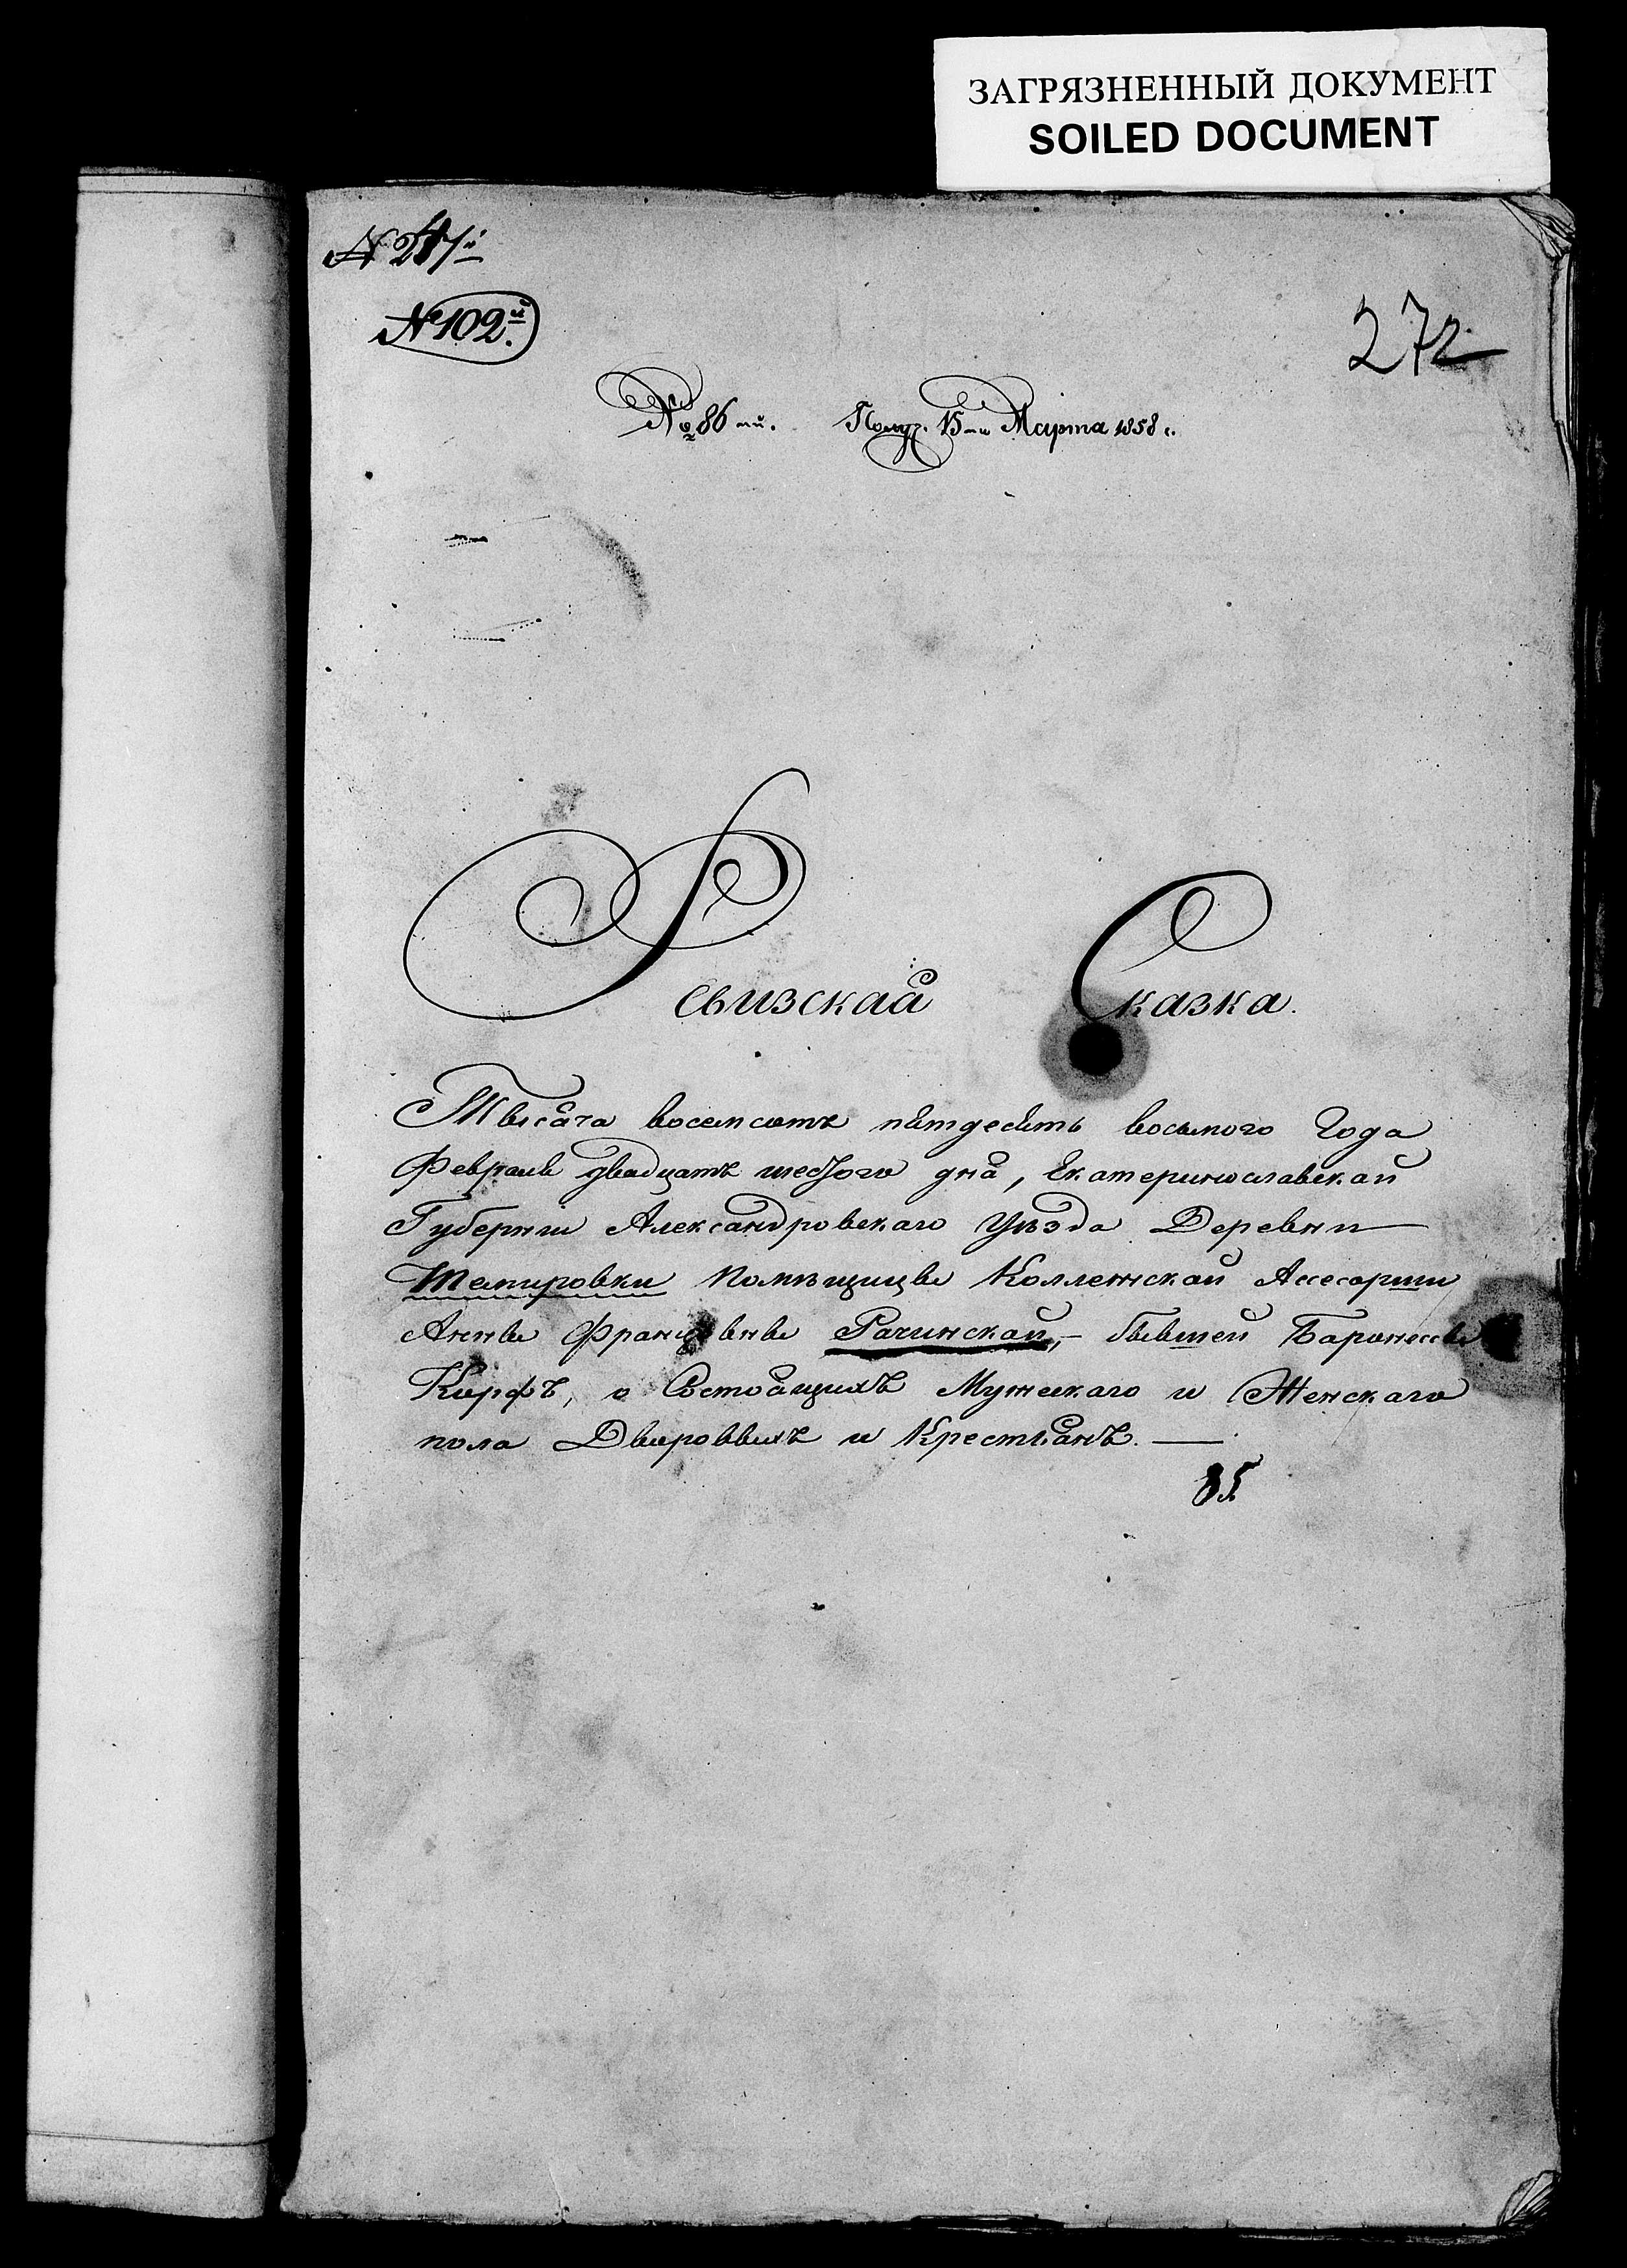 ЗАГРЯЗНЕННЫЙ ДОКУМЕНТ
SOILED DOCUMENT
№ 102й.
272
№ 86-й. Получ. 15-го Марта 1858 г.
Ревизская Сказка.
Тысяча восемсотъ пятдесятъ восьмого Года
Февраля двадцатъ шестого дня, Екатеринославской
Губернии Александровскаго Уѣзда Деревни
Темировки Помѣщицы Коллежской Ассесорши
Анны Францовны Рачинской, - бывшей Баронессы
Корфъ, о Состоящихъ Мужескаго и Женскаго
пола Дворовыхъ и Крестьянъ. —
85.